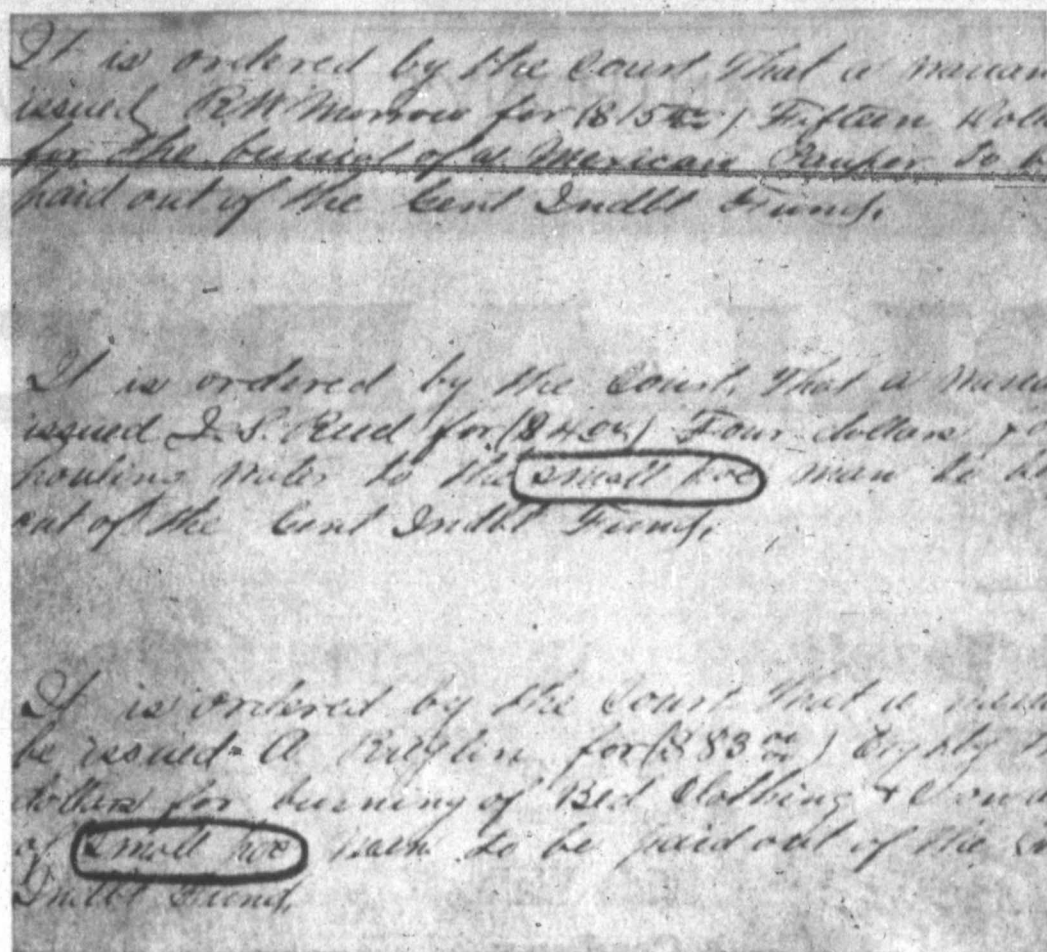 It is ordered by the Court That a
issued R W Morrow for ($15 00/100) Fifteen
for the burial of a Mexican Pauper to
paid out of the Cent Indbt Fund.
It is ordered by the Court, That a
issued J. S. Reed for ($4 00) Four dollars
hauling water to the small pox man to be
out of the Cent Indbt Fund.
It is ordered by the Court That a
be issued A for ($83 00/100) Eighty
dollars for burning of Bed Clothing &
of small pox man to be paid out of the
Indbt Fund.